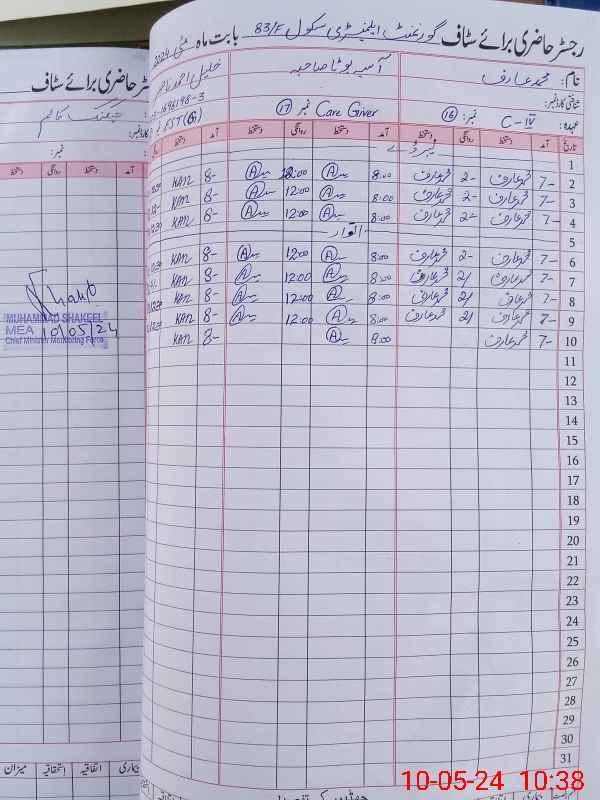 رجسٹر حاضری برائے سٹاف گورنمنٹ ایلیمنٹری سکول 83/F بابت ماہ مئی 2024
نام: محمد عارف
آسیہ بوٹا صاحبہ
خلیل احمد
شناختی کارڈ نمبر:
عہدہ: C-IV نمبر: 16
Care Giver نمبر 17
EST(G)
تاریخ آمد دستخط روانگی دستخط آمد دستخط روانگی دستخط آمد دستخط
1 لیبر ڈے
2 7- محمد عارف 2- محمد عارف 8:00 A 12:00 A 8- KAN
3 7- محمد عارف 2- محمد عارف 8:00 A 12:00 A 8- KAN
4 7- محمد عارف 2- محمد عارف 8:00 A 12:00 A 8- KAN
5 اتوار
6 7- محمد عارف 2- محمد عارف 8:00 A 12:00 A 8- KAN
7 7- محمد عارف 2/ محمد عارف 8:00 A 12:00 A 8- KAN
8 7- محمد عارف 2/ محمد عارف 8:00 A 12:00 A 8- KAN
9 7- محمد عارف 2/ محمد عارف 8:00 A 12:00 A 8- KAN
10 7- محمد عارف 8:00 A 8- KAN
11
12
13
14
15
16
17
18
19
20
21
22
23
24
25
26
27
28
29
30
31
رجسٹر حاضری برائے سٹاف
نمبر:
آمد دستخط روانگی دستخط
MUHAMMAD SHAKEEL
MEA 10/05/24
Chief Minister Monitoring Force
بیماری اتفاقیہ استحقاقیہ میزان
10-05-24 10:38